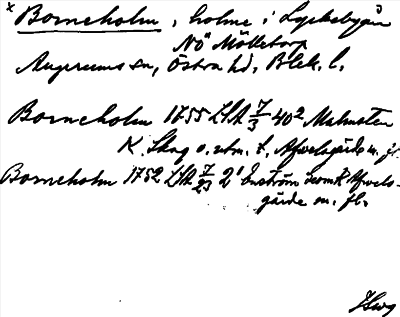 x Borneholm, holme i Lyckebyån
NÖ Mölletorp
Augerums sn, Östra hd, Blek. l.
Borneholm 1755 LSA 7/3 40² Malmsten
K. Skog o. utm. t. Afvelsgärde m. fl.
Borneholm 1752 LSA 7/23 2¹ Enström Afvels-
gärde m. fl.